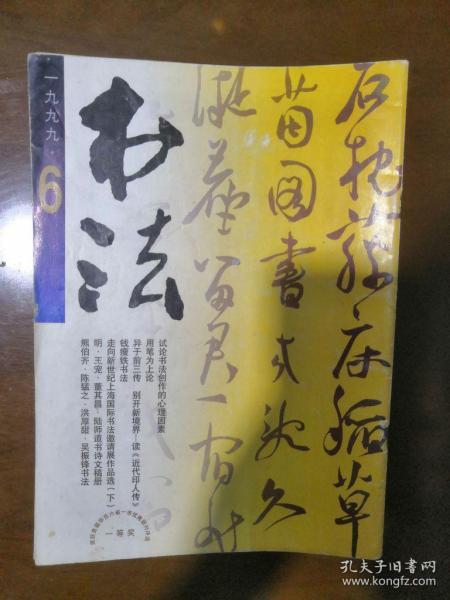 一九九九·6
书法
石枕蘋床稻草
茵图書相乱久
凝塵留君一宿
试论书法创作的心理因素
用笔为上论
异于前三传 别开新境界—读《近代印人传》
钱瘦铁书法
走向新世纪上海国际书法邀请展作品选(下)
明·王宠·董其昌·陆师道书诗文稿册
熊伯齐·陈猛之·洪厚甜·吴振锋书法
一等奖
孔夫子旧书网